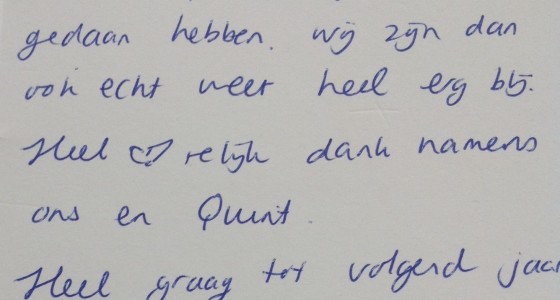 gedaan hebben. wij zijn dan
ook echt weer heel erg blij.
Heel ♡ relijk dank namens
ons en Quint.
Heel graag tot volgend jaar